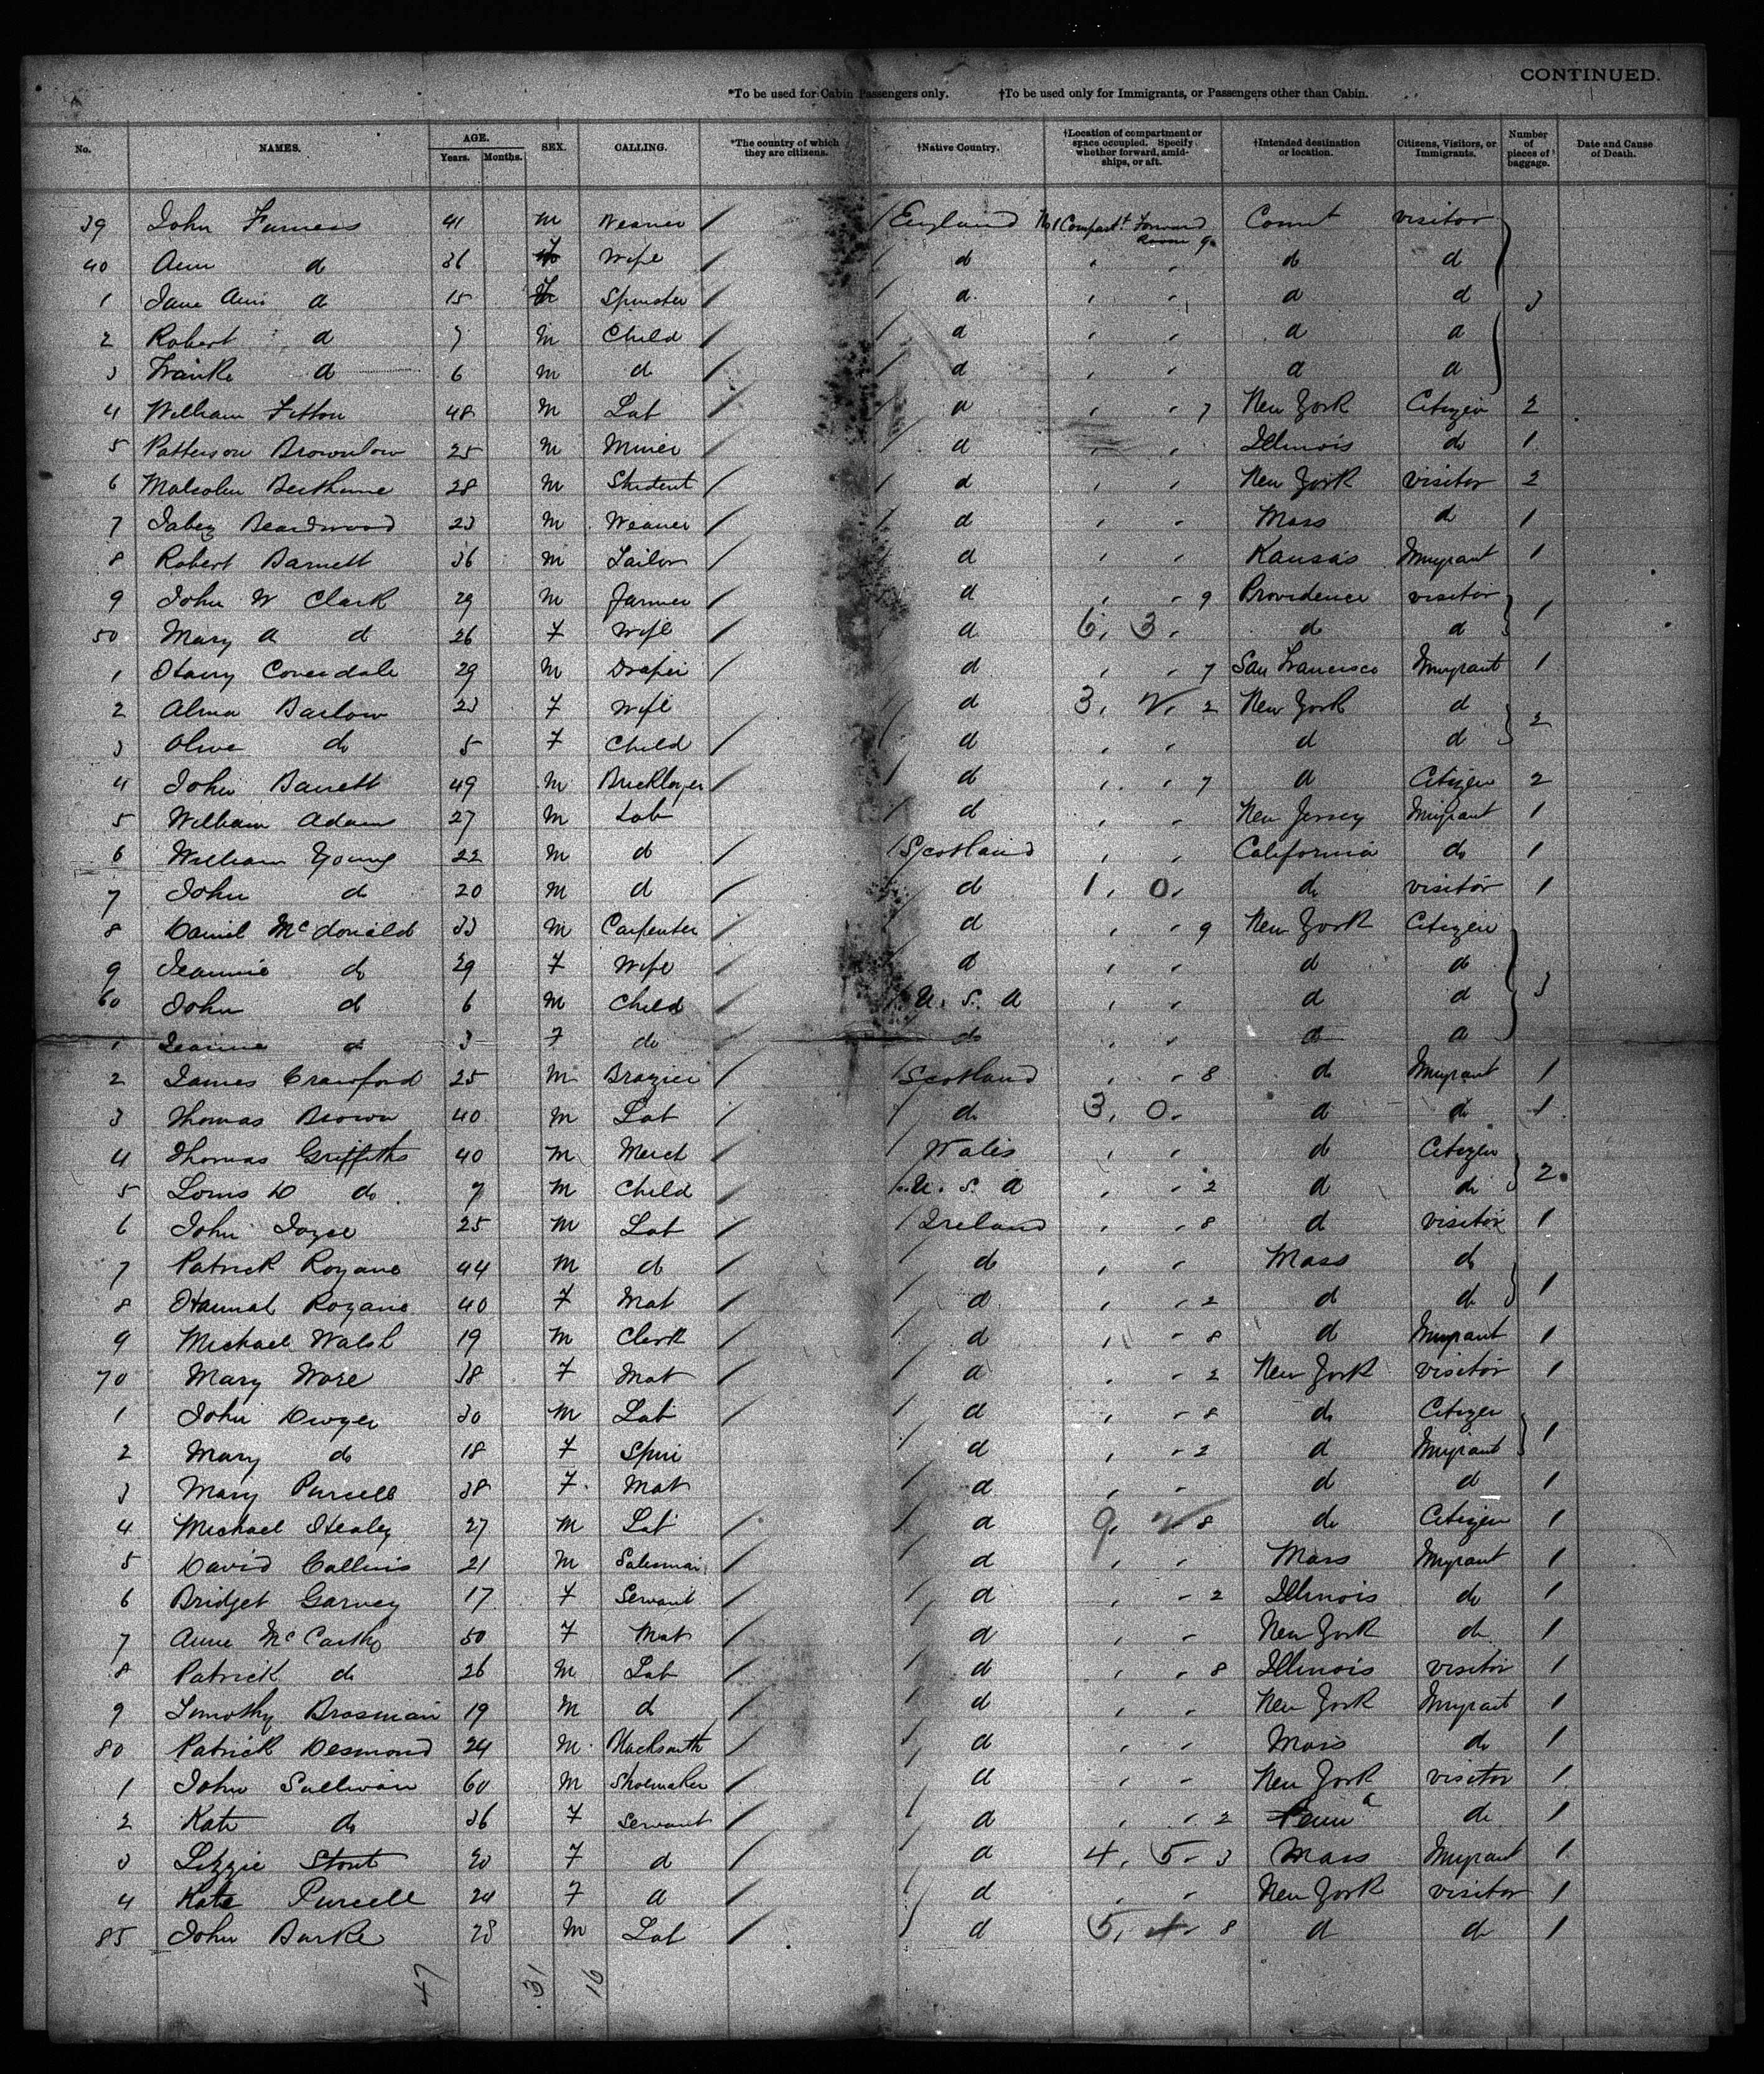 CONTINUED.
*To be used for Cabin Passengers only. †To be used only for Immigrants, or Passengers other than Cabin.
No. NAMES. AGE. Years. Months. SEX. CALLING. *The country of which they are citizens. †Native Country. †Location of compartment or space occupied. Specify whether forward, amidships, or aft. †Intended destination or location. Citizens, Visitors, or Immigrants. Number of pieces of baggage. Date and Cause of Death.
39 John Furness 41 m Weaver / / England No 1 Compart Forward Room 9 Connt visitor
40 Ann d 36 F Wife / / d " " d d
1 Jane Ann d 15 F Spinster / / d " " d d 3
2 Robert d 7 m Child / / d " " d d
3 Franke d 6 m d / / d " " d d
4 William Fitton 48 m Lab / / d " " 7 New York Citizen 2
5 Patterson Brownlow 25 m Miner / / d " " Illinois do 1
6 Malcolm Bethune 28 m Student / / d " " New York visitor 2
7 Jabez Beardwood 23 m Weaver / / d " " Mass d 1
8 Robert Barnett 36 m Tailor / / d " " Kansas Imigrant 1
9 John W Clark 29 m Farmer / / d " " 9 Providence visitor 1
50 Mary A d 26 F Wife / d 6, 3. d d
1 Harry Coverdale 29 m Draper / d " " 7 San Francisco Imigrant 1
2 Alma Barlow 23 F Wife d 3, 2 New York d 2
3 Olive do 5 F Child / / d " " d d
4 John Barrett 49 m Bricklayer / / d " " 7 d Citizen 2
5 William Adams 27 m Lab / d " " New Jersey Imigrant 1
6 William Young 22 m d / / Scotland " " California do 1
7 John d 20 m d / / d 1, 0, do visitor 1
8 Daniel McDonald 33 m Carpenter / / d " " 9 New York Citizen
9 Jeannie do 29 F Wife / / d " " d do 3
60 John d 6 m Child / / U. S. A " " d d
1 Jeannie d 3 F do do " " d d
2 James Crawford 25 m Brazier / / Scotland " " 8 do Imigrant 1
3 Thomas Brown 40 m Lab / / do 3, 0. d do 1
4 Thomas Griffiths 40 m Merct / / Wales " " d Citizen 2
5 Louis D do 7 m Child / / U. S. A " " 2 d do
6 John Joyce 25 m Lab / / Ireland " " 8 d visitor 1
7 Patrick Rozane 44 m do / / do " " Mass do 1
8 Hannah Rozane 40 F Mat / / d " " 2 d do
9 Michael Walsh 19 m Clerk / / d " " 8 d Imigrant 1
70 Mary Wore 38 F Mat / / d " " 2 New York visitor 1
1 John Dwyer 30 m Lab / / d " " 8 do Citizen 1
2 Mary do 18 F Spin / d " " 2 d Imigrant
3 Mary Purcell 38 F Mat / d " " d d 1
4 Michael Healey 27 m Lab / / d 9, 8 do Citizen 1
5 David Collins 21 m Salesman / / d " " Mass Imigrant 1
6 Bridget Garvey 17 F Servant / / d " " 2 Illinois do 1
7 Anne McCarthy 50 F Mat / / d " " New York do 1
8 Patrick do 26 m Lab / / d " " 8 Illinois visitor 1
9 Timothy Brosnian 19 m do / / d " " New York Imigrant 1
80 Patrick Desmond 24 m Blacksmith / / d " " Mass do 1
1 John Sullivan 60 m Shoemaker / / d " " New York visitor 1
2 Kate do 36 F Servant / / d " " 2 Penna do 1
3 Lizzie Stout 20 F d / / d 4, 5 3 Mass Imigrant 1
4 Kate Purcell 24 F d / / d " " New York visitor 1
85 John Burke 28 m Lab / / d 5, 8 d do 1
47 31 16